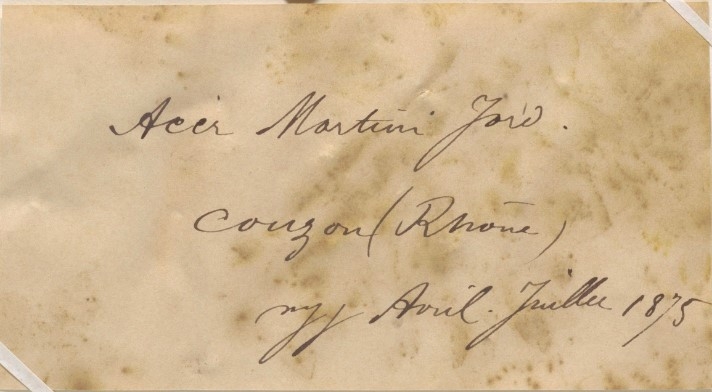 Acer Martini Jord.
Couzon (Rhône)
Avril. Juillet 1875